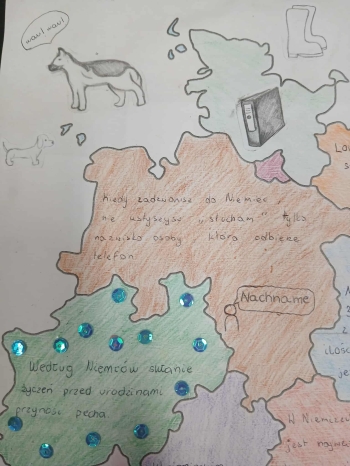 hau! hau!
Kiedy zadzwonisz do Niemiec,
nie usłyszysz „słucham” tylko
nazwisko osoby, która odbierze
telefon.
Nachname
Według Niemców składanie
życzeń przed urodzinami
przynosi pecha.
ilość
je
W Niemczech
jest najwię